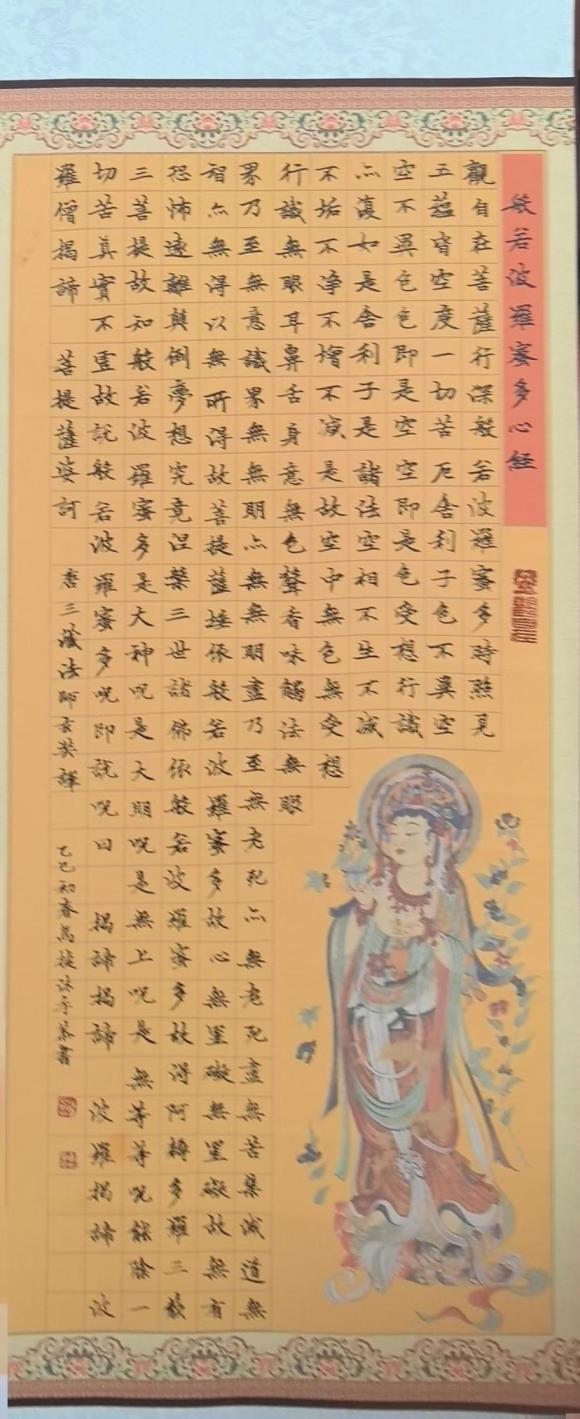 般若波羅蜜多心經
觀自在菩薩行深般若波羅蜜多時照見
五蘊皆空度一切苦厄舍利子色不異空
空不異色色即是空空即是色受想行識
亦復如是舍利子是諸法空相不生不滅
不垢不淨不增不減是故空中無色無受想
行識無眼耳鼻舌身意無色聲香味觸法無眼
界乃至無意識界無無明亦無無明盡乃至無老死亦無老死盡無苦集滅道無
智亦無得以無所得故菩提薩埵依般若波羅蜜多故心無罣礙無罣礙故無有
恐怖遠離顛倒夢想究竟涅槃三世諸佛依般若波羅蜜多故得阿耨多羅三藐
三菩提故知般若波羅蜜多是大神呪是大明呪是無上呪是無等等呪能除一
切苦真實不虛故說般若波羅蜜多呪即說呪曰 揭諦揭諦 波羅揭諦 波
羅僧揭諦 菩提薩婆訶 唐三藏法師玄奘譯 乙巳初春馬捷沐手恭書